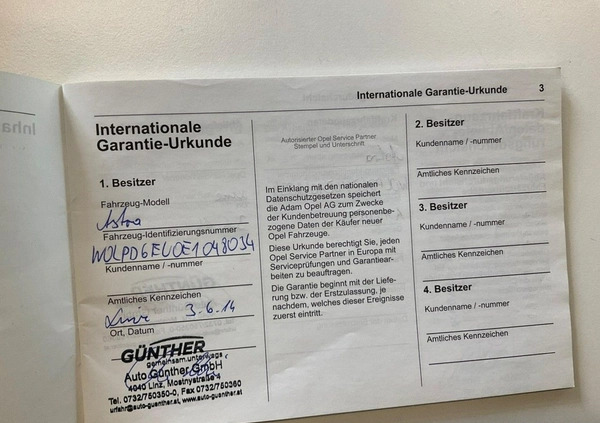 Internationale Garantie-Urkunde 3
Internationale
Garantie-Urkunde
1. Besitzer
Fahrzeug-Modell
Astra
Fahrzeug-Identifizierungsnummer
W0LPD6EU0E1048034
Kundenname / -nummer
Amtliches Kennzeichen
Linz 3.6.14
Ort, Datum
GÜNTHER
gemeinsam.unterwegs
Auto Günther GmbH
4040 Linz, Mostnystraße 4
Tel. 0732/750350-0, Fax 0732/750360
urfahr@auto-guenther.at, www.auto-guenther.at
Autorisierter Opel Service Partner
Stempel und Unterschrift
Im Einklang mit den nationalen
Datenschutzgesetzen speichert
die Adam Opel AG zum Zwecke
der Kundenbetreuung personenbe-
zogene Daten der Käufer neuer
Opel Fahrzeuge.
Diese Urkunde berechtigt Sie, jeden
Opel Service Partner in Europa mit
Serviceprüfungen und Garantiear-
beiten zu beauftragen.
Die Garantie beginnt mit der Liefe-
rung bzw. der Erstzulassung, je
nachdem, welches dieser Ereignisse
zuerst eintritt.
2. Besitzer
Kundenname / -nummer
Amtliches Kennzeichen
3. Besitzer
Kundenname / -nummer
Amtliches Kennzeichen
4. Besitzer
Kundenname / -nummer
Amtliches Kennzeichen